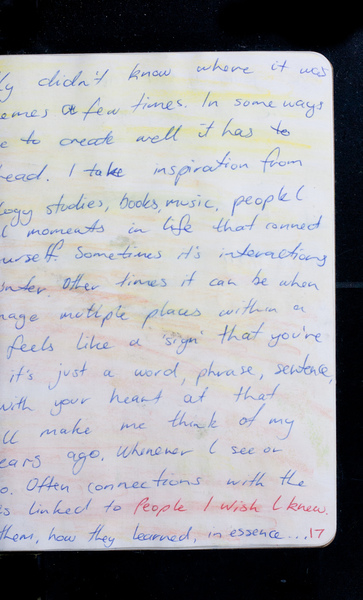 ly didn't know where it was
emes a few times. In some ways
e to create well it has to
head. I take inspiration from
logy studies, books, music, people I
l moments in life that connect
urself. Sometimes it's interactions
unter. Other times it can be when
nage multiple places within a
feels like a 'sign' that you're
it's just a word, phrase, sentence,
with your heart at that
ll make me think of my
ears ago. Whenever I see or
o. Often connections with the
s linked to People I wish I knew.
them, how they learned, in essence...17